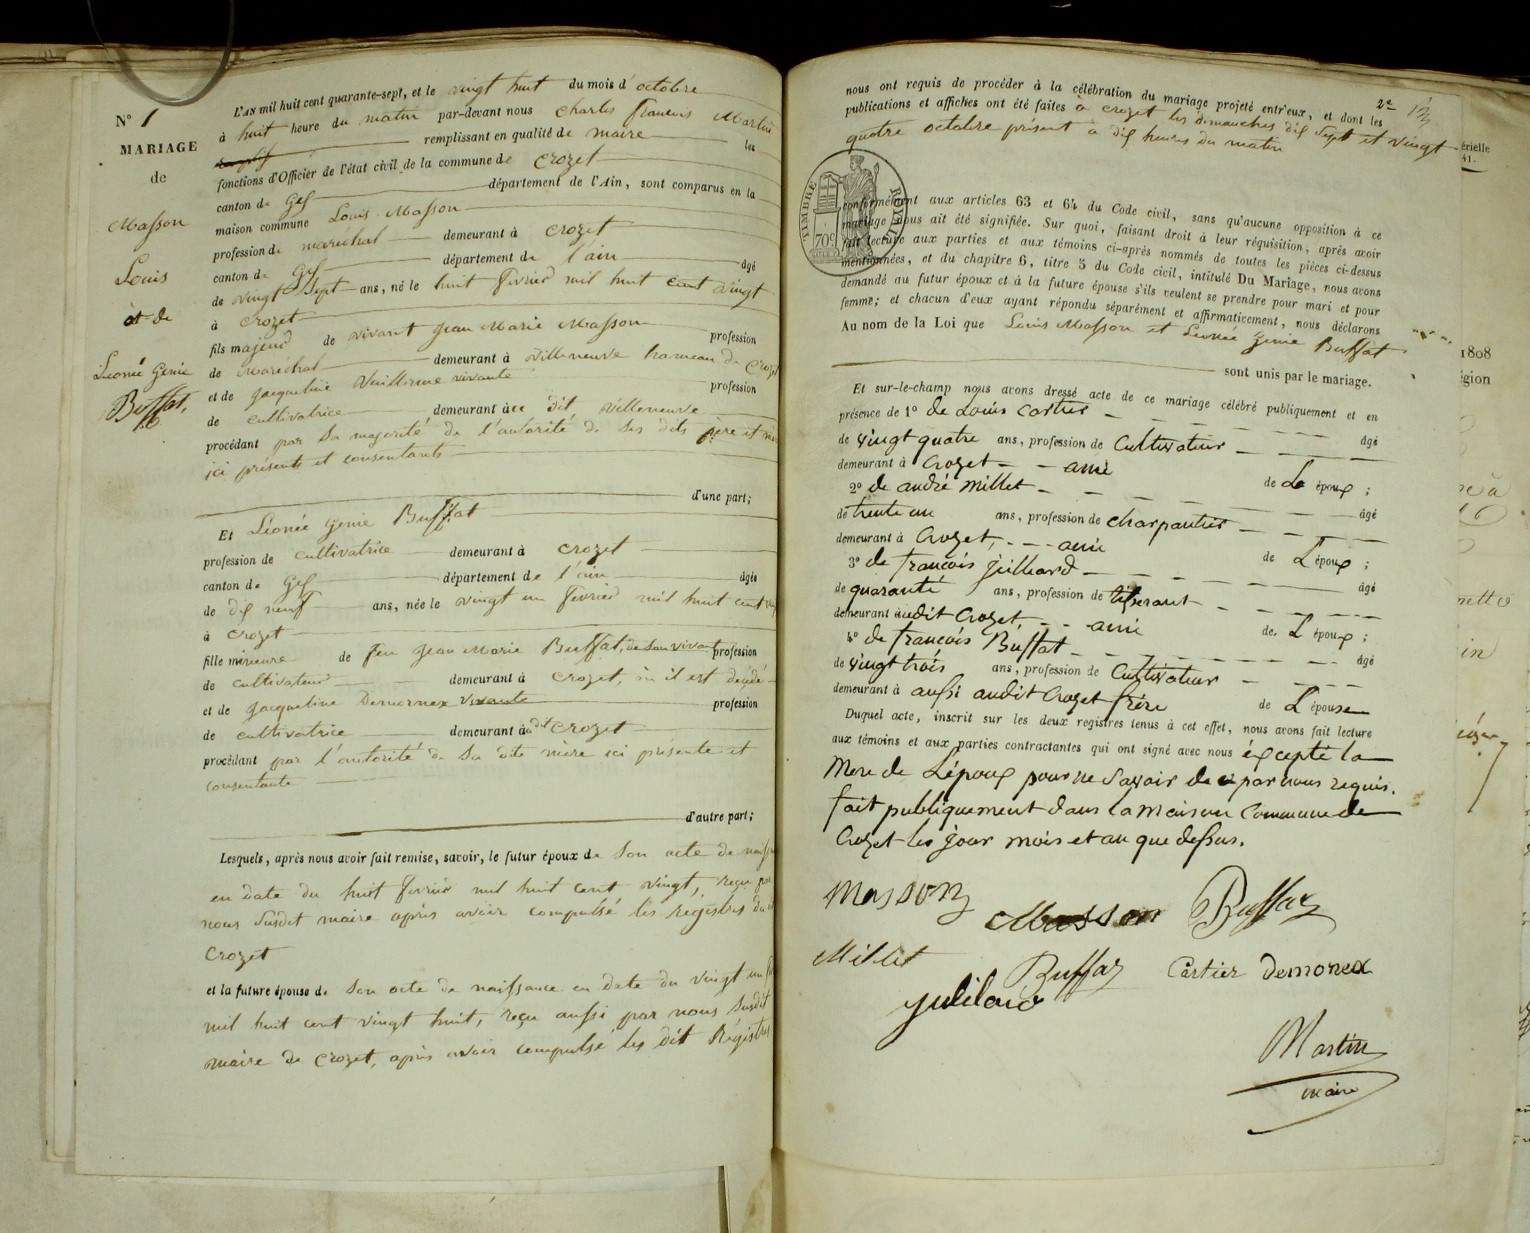 N° 1
MARIAGE
de
Masson
Louis
et de
Léonée Génie
Buffat.
L'AN mil huit cent quarante-sept, et le vingt huit du mois d'octobre
à huit heure du matin par-devant nous Charles françois Martin
remplissant en qualité de maire les
fonctions d'Officier de l'état civil de la commune de Crozet
canton de Gex département de l'Ain, sont comparus en la
maison commune Louis Masson
profession de maréchal demeurant à Crozet
canton de Gex département de l'ain âgé
de vingt Sept ans, né le huit février mil huit cent vingt
à Crozet
fils majeur de vivant Jean Marie Masson profession
de maréchal demeurant à Villeneuve hameau de Crozet
et de Jacqueline Vuillerme vivante profession
de cultivatrice demeurant à dit Villeneuve
procédant par Sa majorité de l'autorité de Ses dits père et mère
ici présents et consentants
d'une part;
Et Léonée Génie Buffat
profession de cultivatrice demeurant à Crozet
canton de Gex département de l'ain âgée
de dix neuf ans, née le vingt un février mil huit cent vingt
à Crozet
fille mineure de feu Jean Marie Buffat, de Son vivant profession
de cultivateur demeurant à Crozet, où il est décédé
et de Jacqueline Demornex vivante profession
de cultivatrice demeurant au dit Crozet
procédant par l'autorité de Sa dite mère ici présente et
consentante
d'autre part;
Lesquels, après nous avoir fait remise, savoir, le futur époux de Son acte de naissance
en date du huit février mil huit cent vingt, reçu par
nous Susdit maire après avoir compulsé les registres du dit
Crozet
et la future épouse de Son acte de naissance en date du vingt un
mil huit cent vingt huit, reçu aussi par nous Susdit
maire de Crozet, après avoir compulsé les dit Régistres
2e
nous ont requis de procéder à la célébration du mariage projeté entr'eux, et dont les
publications et affiches ont été faites à Crozet les dimanches dix Sept et vingt
quatre octobre présent à dix heures du matin
TIMBRE ROYAL
70c
conformément aux articles 63 et 64 du Code civil, sans qu'aucune opposition à ce
mariage nous ait été signifiée. Sur quoi, faisant droit à leur réquisition, après avoir
fait lecture aux parties et aux témoins ci-après nommés de toutes les pièces ci-dessus
mentionnées, et du chapitre 6, titre 5 du Code civil, intitulé DU MARIAGE, nous avons
demandé au futur époux et à la future épouse s'ils veulent se prendre pour mari et pour
femme; et chacun d'eux ayant répondu séparément et affirmativement, nous déclarons
AU NOM DE LA LOI que Louis Masson et Léonée Génie Buffat
sont unis par le mariage.
Et sur-le-champ nous avons dressé acte de ce mariage célébré publiquement et en
présence de 1° de Louis Cartier âgé
de vingt quatre ans, profession de Cultivateur
demeurant à Crozet ami de L'époux;
2° de andré Millet âgé
de trente un ans, profession de charpentier
demeurant à Crozet, ami de L'époux;
3° de françois Julliard âgé
de quarante ans, profession de tisserant
demeurant àudit Crozet, ami de L'époux;
4° de françois Buffat âgé
de vingt trois ans, profession de Cultivateur
demeurant à aussi audit Crozet frère de L'épouse
Duquel acte, inscrit sur les deux registres tenus à cet effet, nous avons fait lecture
aux témoins et aux parties contractantes qui ont signé avec nous éxcepté la
Mere de L'époux pour ne Savoir de ce par nous requis.
fait publiquement dans la Maison Commune de
Crozet les jour mois et an que dessus.
Masson Masson Buffat
Millet Buffat Cartier Demonex
Julilard
Martin
maire
1808
égion